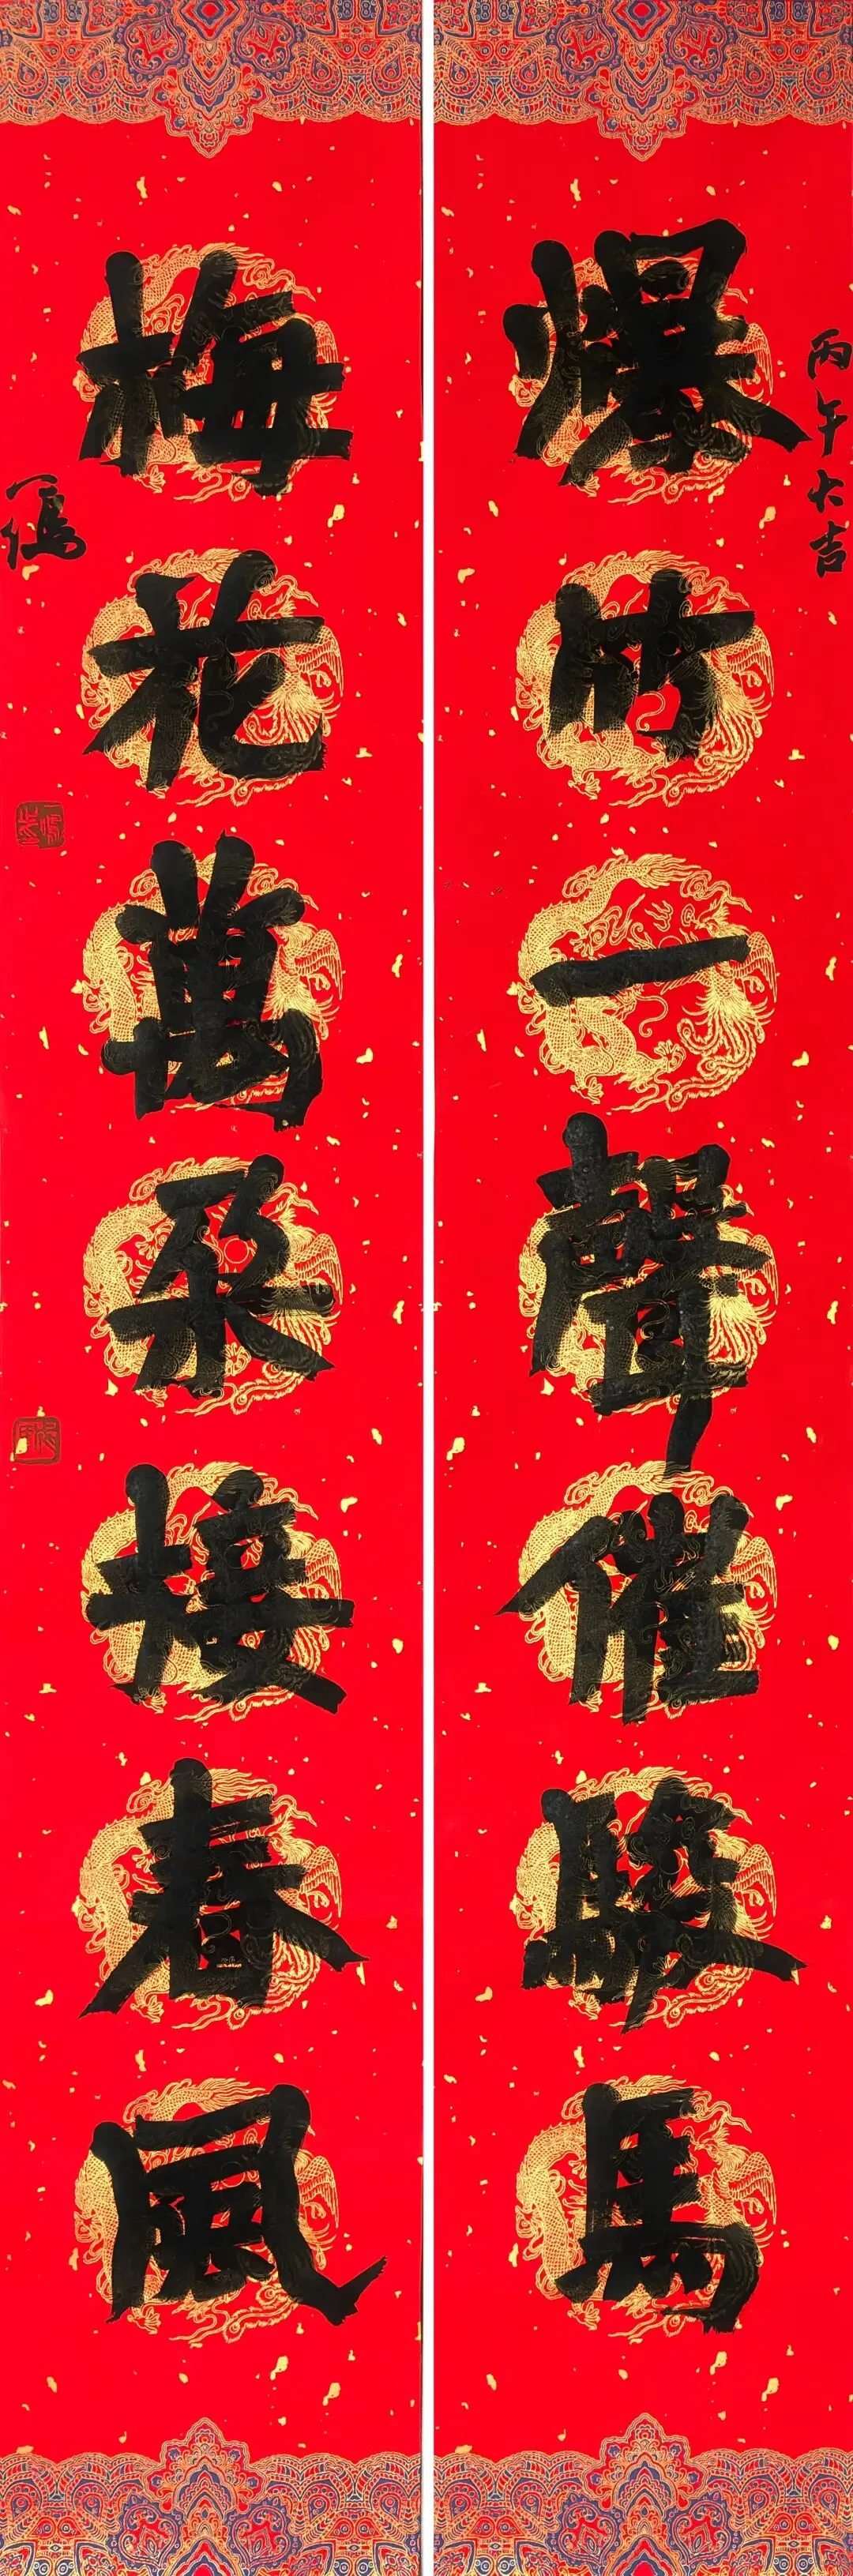 丙午大吉
爆竹一聲催駿馬
梅花萬朵接春風